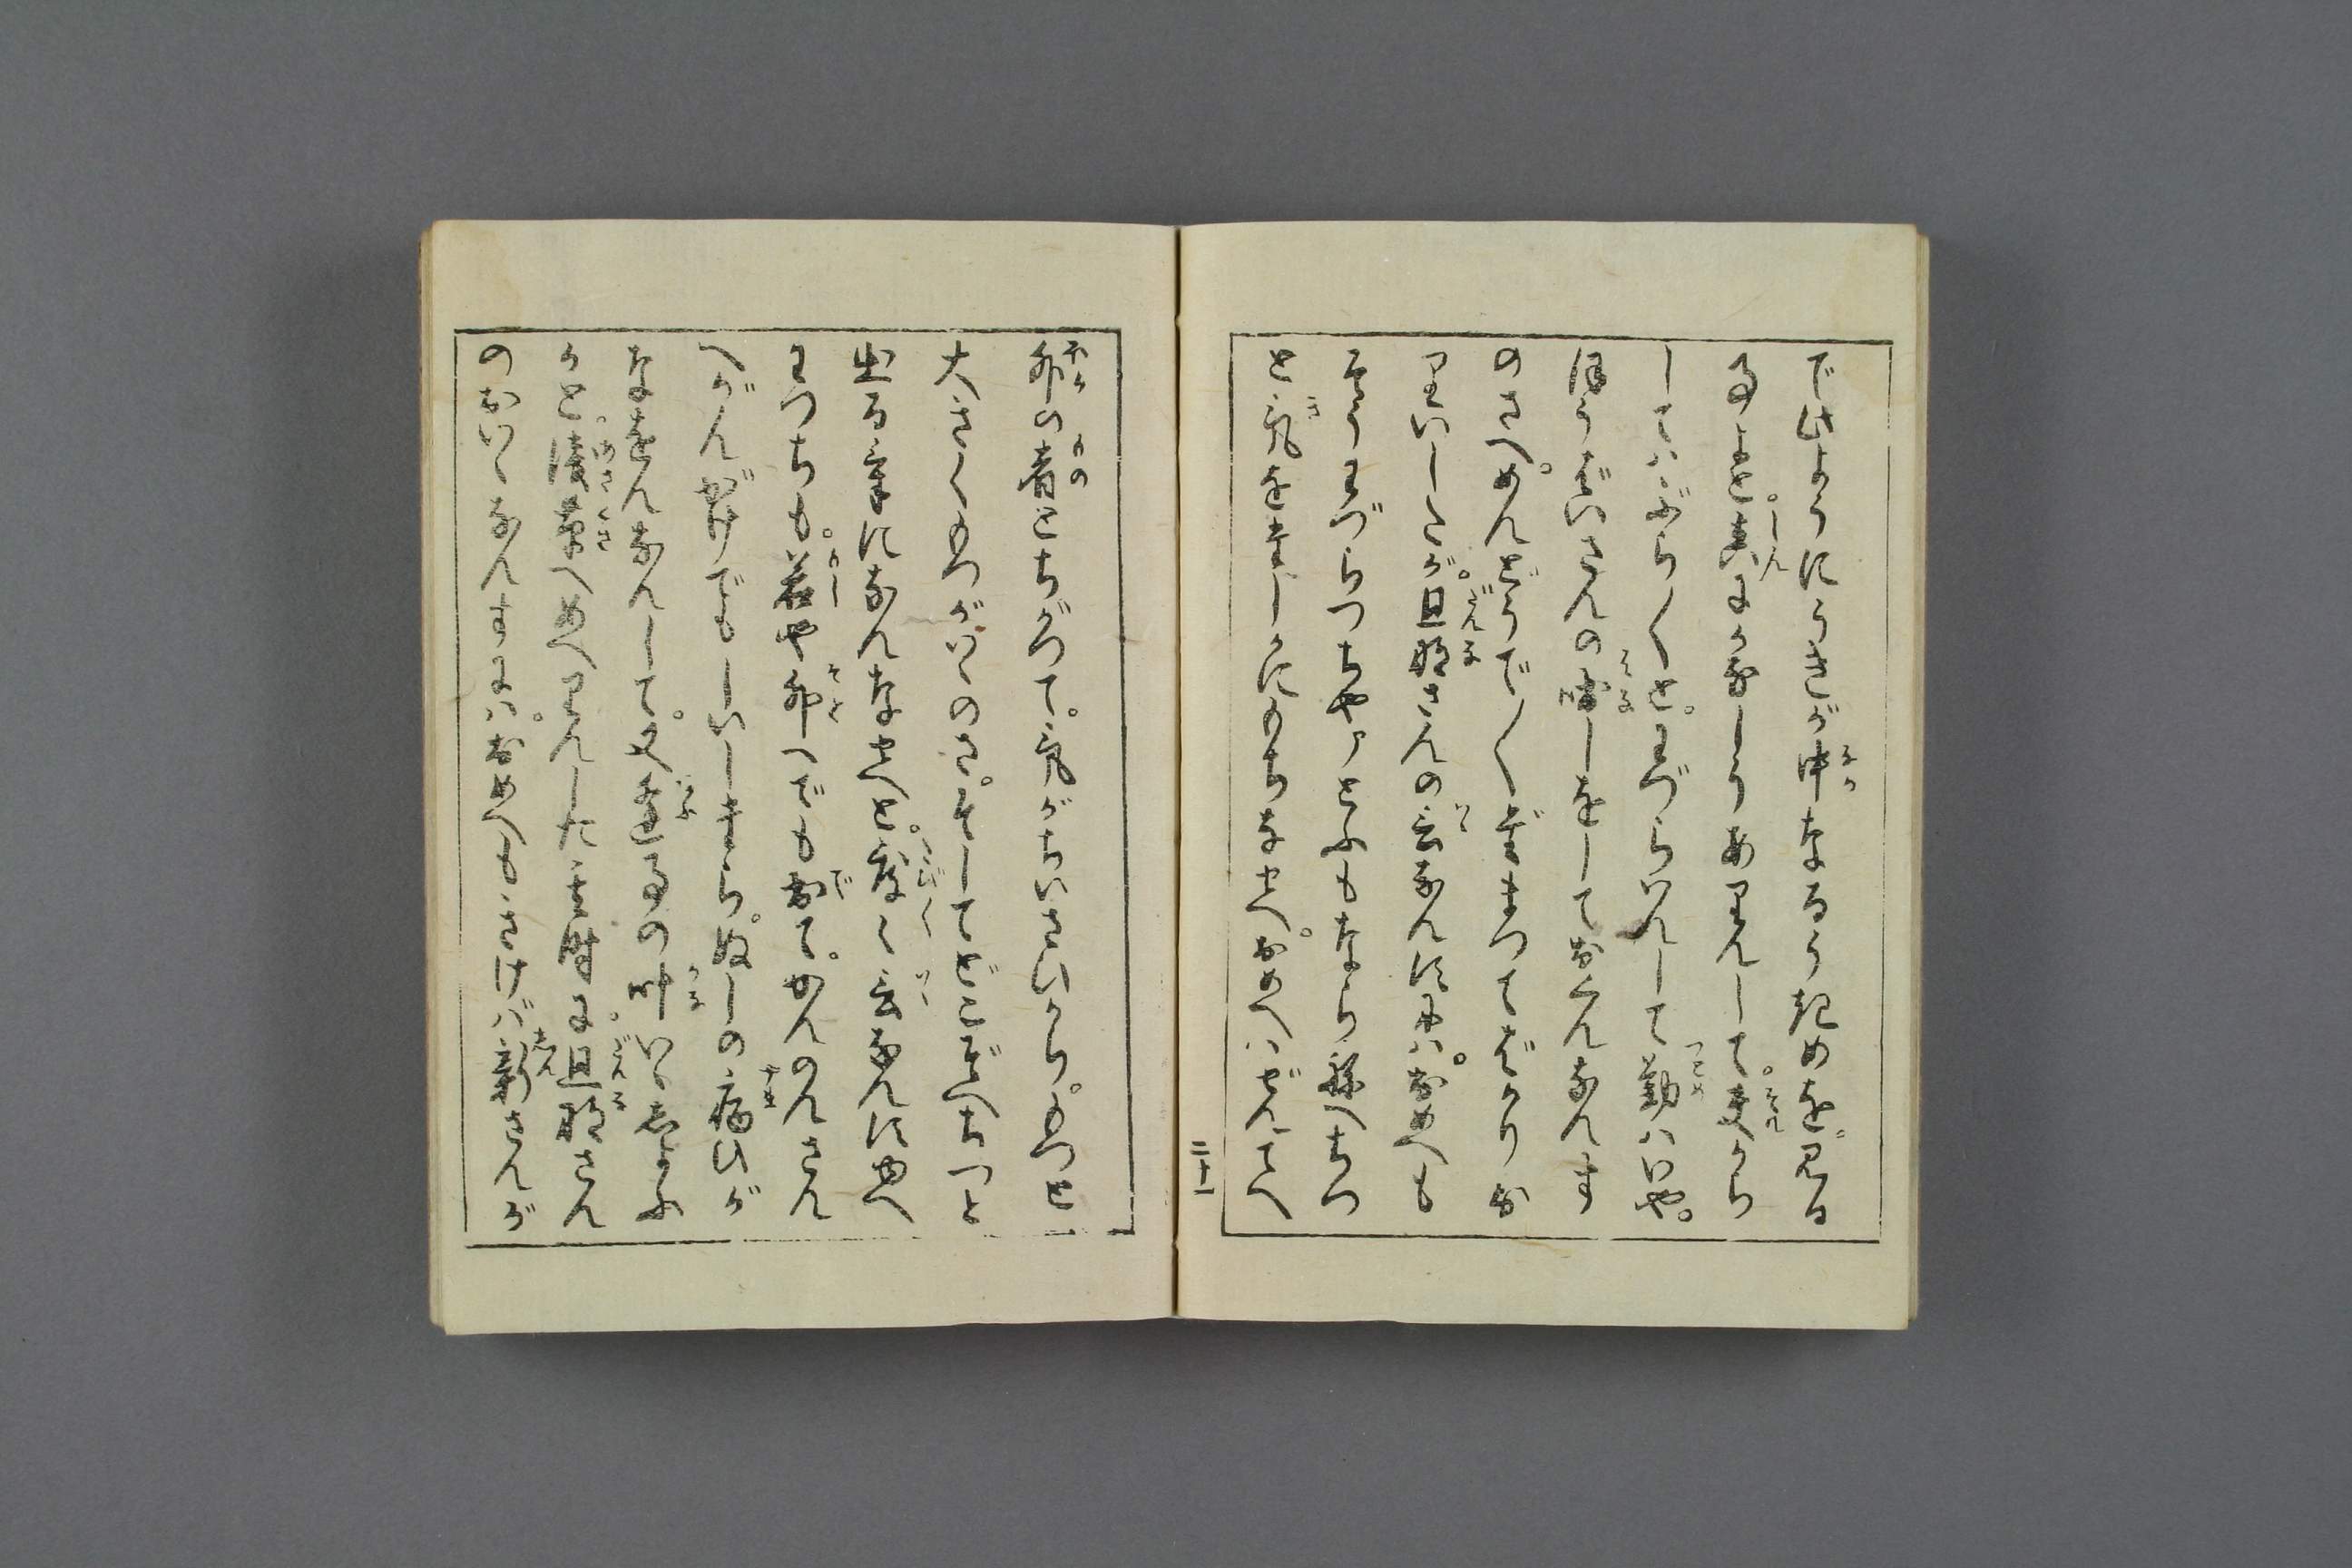 で此ようにうきが中なるう起めを。見る
事よと。真にかなしうありんして。夫から
してハぶら〳〵と。わづらいんして勤ハいや。
ほうばいさんの噺しをしておくんなんす
のさへ。めんどうで〳〵ずまつてばかりお
りいしたが。旦那さんの云なんすにハ。おめへも
そうわづらつちやアとふもならねへちつ
と気をまじかにもちなせへ。おめへハぜんてへ
外の者とちがつて。気がちいさいから。もつと
大きくもつがいゝのさ。そしてどこぞへちつと
出る事になんなせへと。度〳〵云なんすゆへ
わつちも。茗や外へでも出て。かんのんさん
へぐんがけでもしいしまら。ぬしの病ひが
なをんなんして。又逢事の叶いゝしよふ
かと。浅草へめへりんした其時に。旦那さん
のおいゝなんすにハ。おめへもきけバ新さんが
二十一